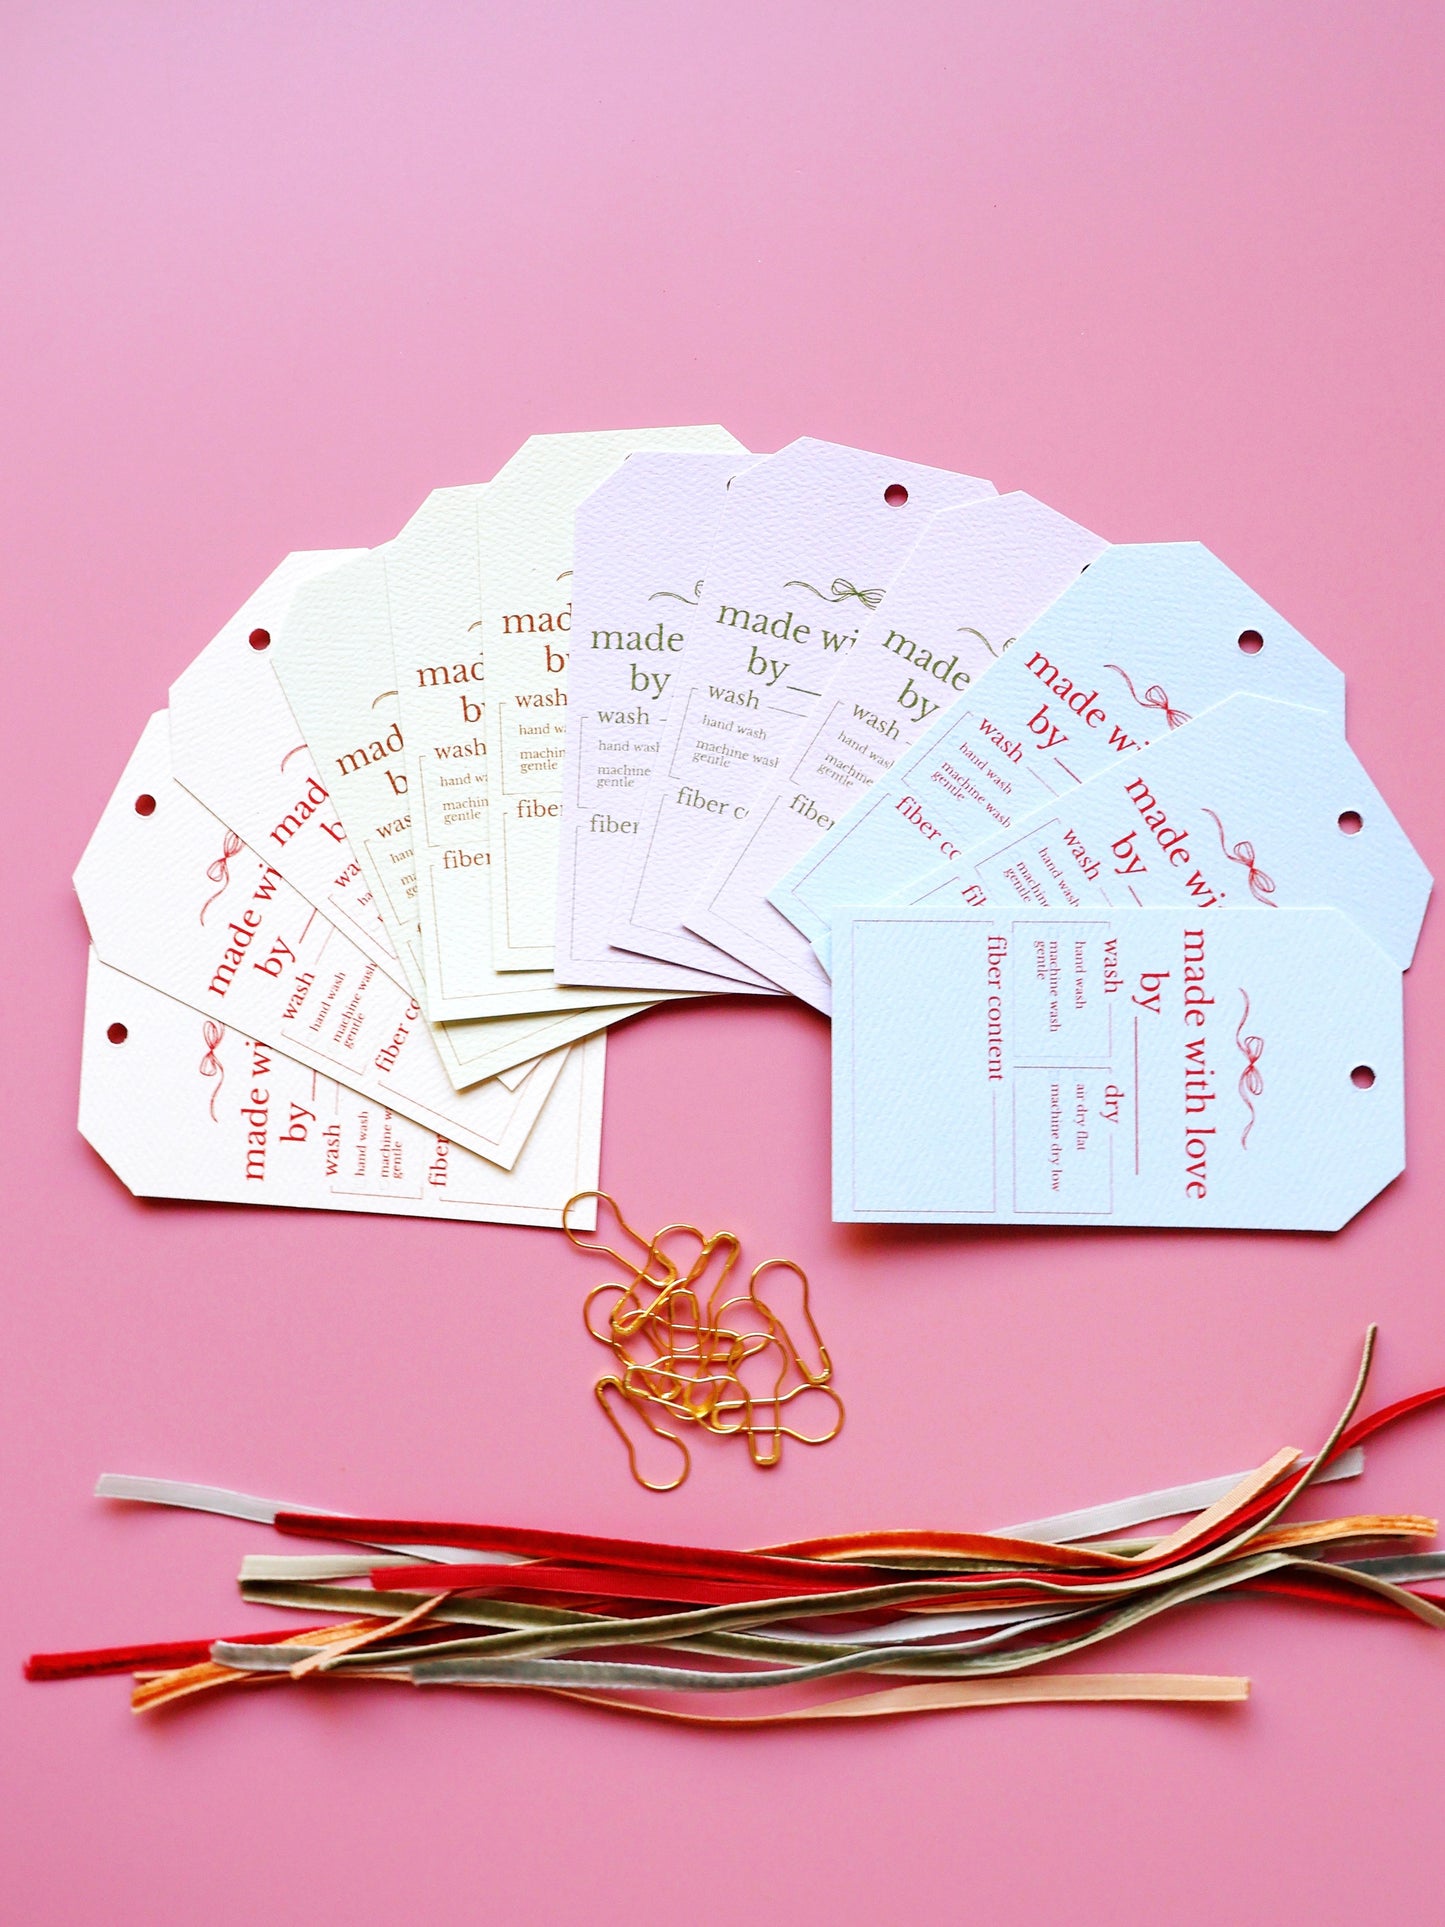 made wi
by
wash
hand wash
machine w
gentle
fiber
made wi
by
wash
hand wash
machine wash
gentle
fiber co
mad
b
wa
mad
b
was
han
ma
ge
mad
b
wash
hand w
machin
gentle
fiber
mad
b
wash
hand w
machin
gentle
fiber
made
by
wash
hand wash
machine
gentle
fiber
made wi
by
wash
hand wash
machine wash
gentle
fiber c
made
by
wash
hand wash
machine
gentle
fiber
made wi
by
wash
hand wash
machine wash
gentle
fiber co
made wi
by
wash
hand wash
machine
gentle
fib
made with love
by
wash
hand wash
machine wash
gentle
dry
air dry flat
machine dry low
fiber content